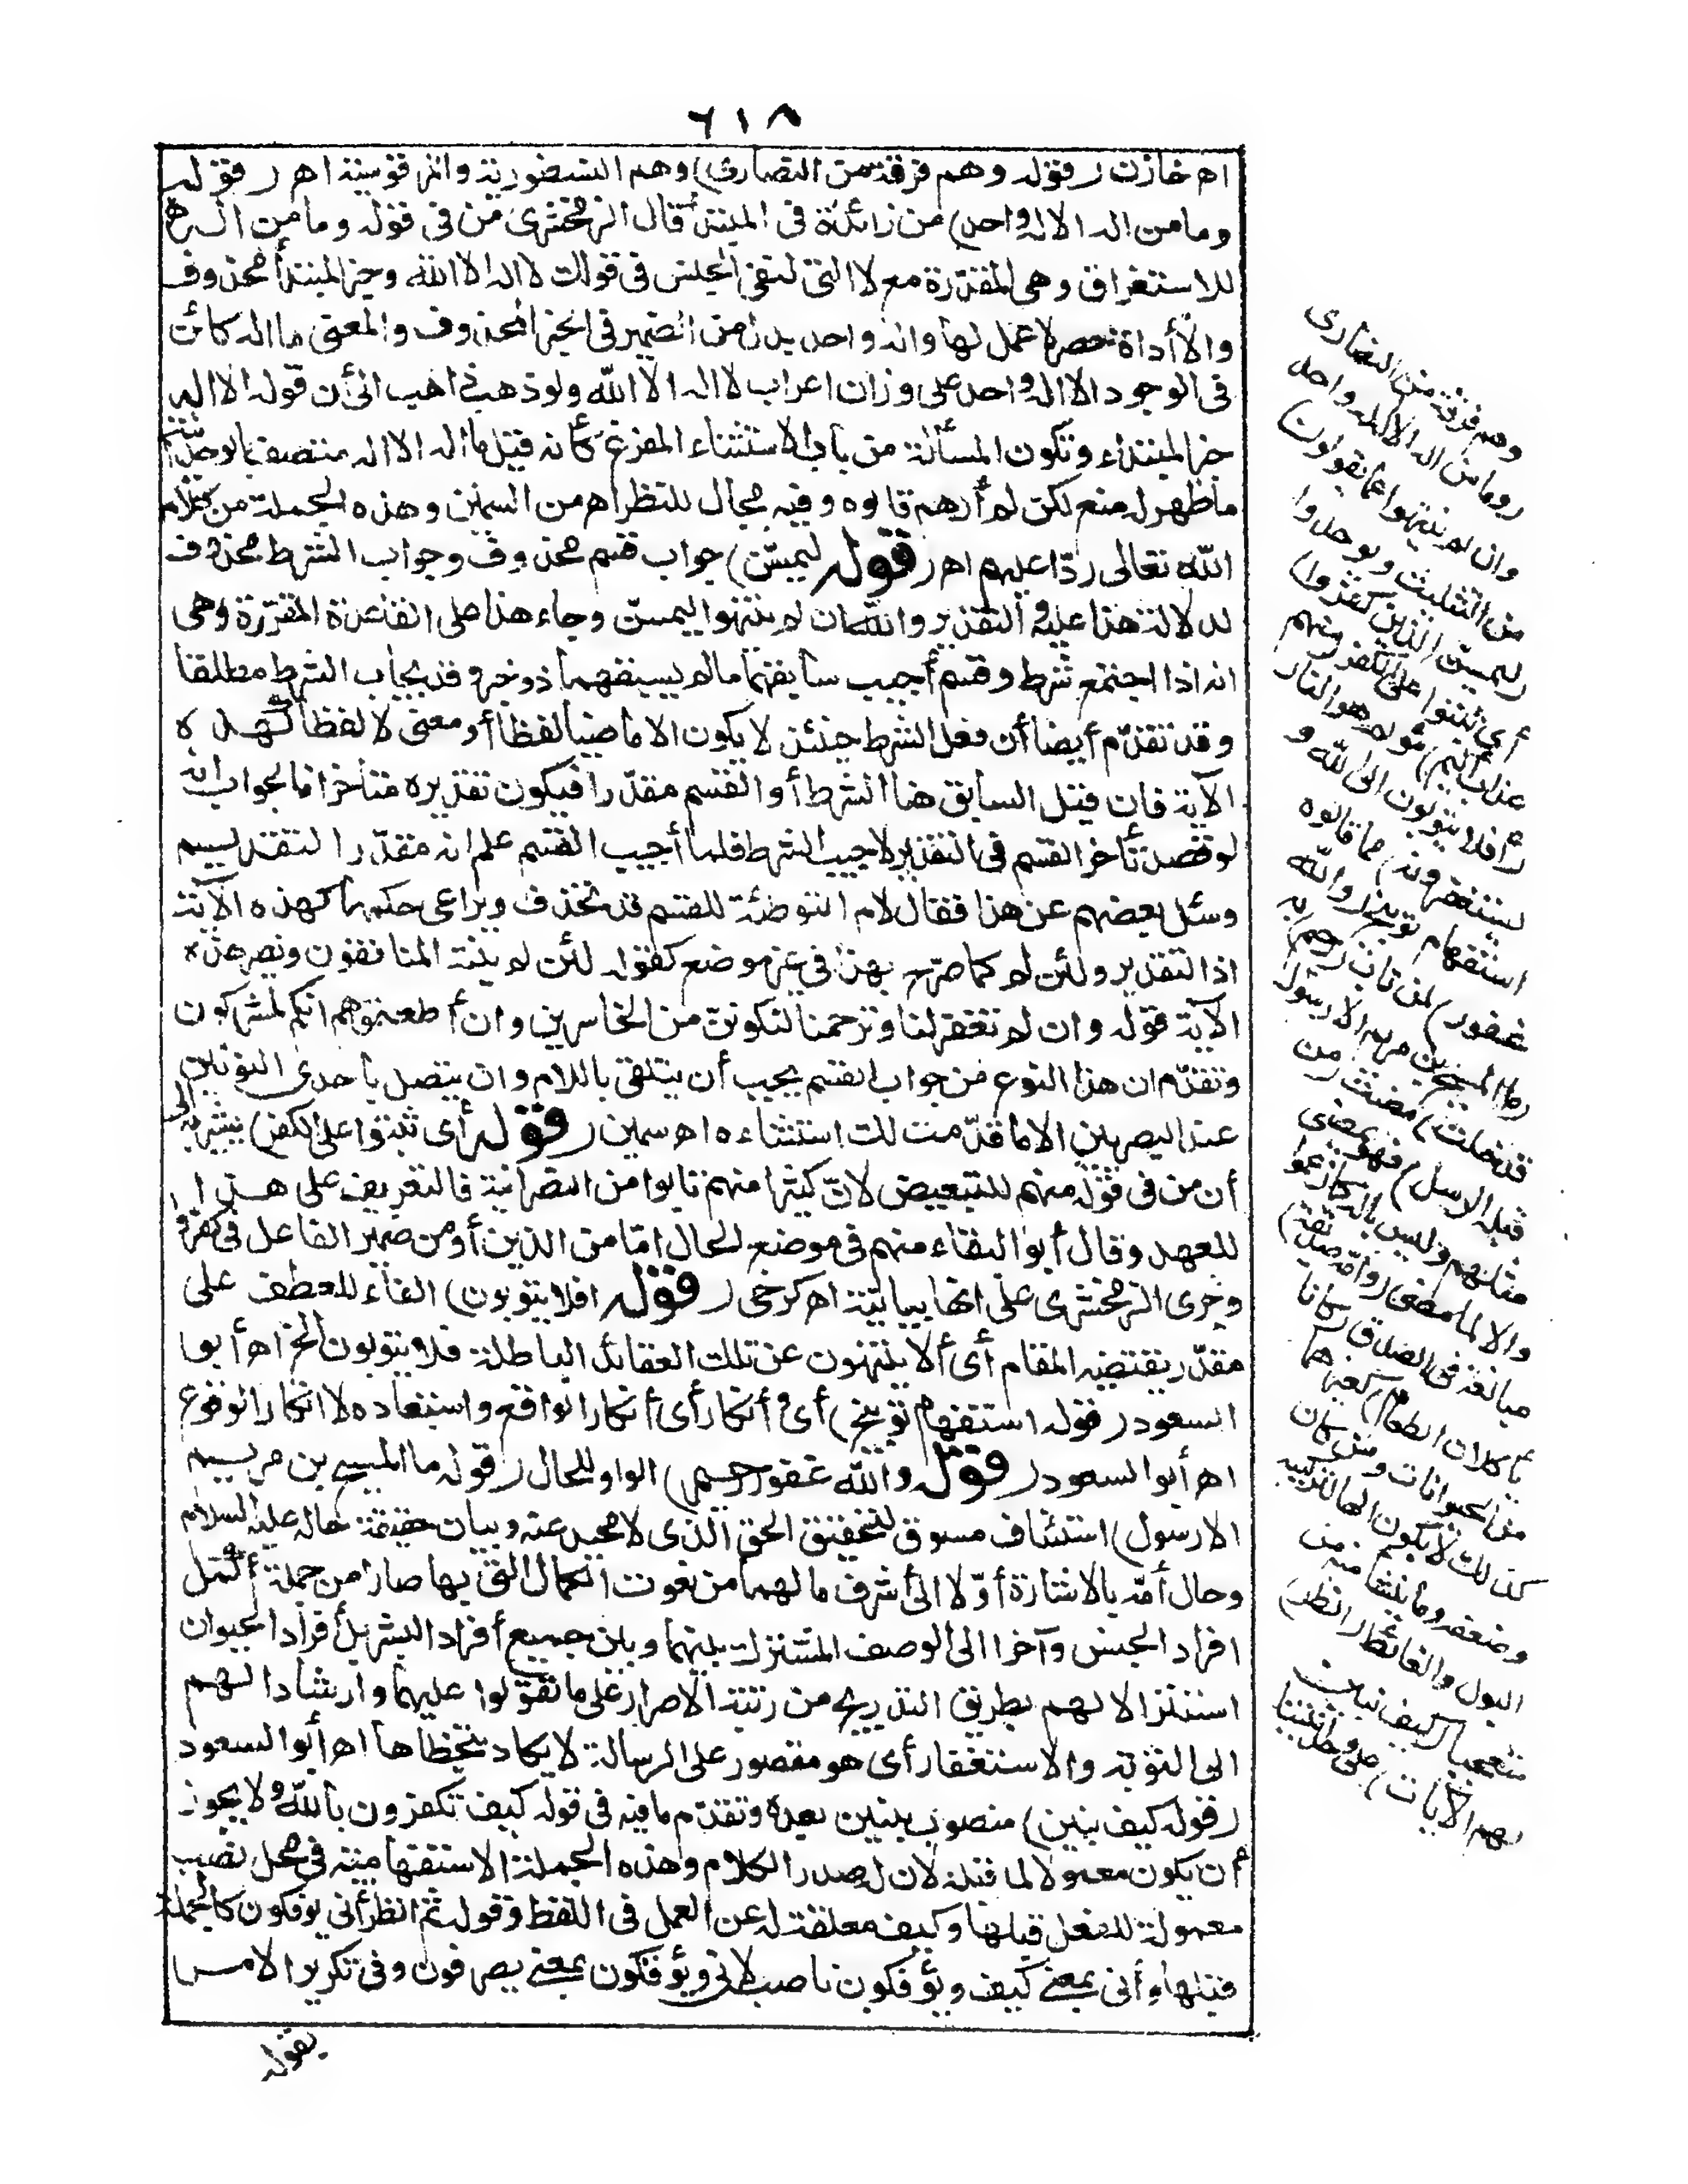 ٦١٨
اه خازن (قوله وهم فرقة من النصارى) وهم النسطورية والمرقوسية اه (قوله
وما من اله الا اله واحد) من زائدة في المبتدأ قال الزمخشري من في قوله وما من اله
للاستغراق وهي المقدرة مع لا التي لنفي الجنس في قولك لا اله الا الله وخبر المبتدأ محذوف
والا أداة حصر لا عمل لها واله واحد بدل من الضمير في الخبر المحذوف والمعنى ما اله كائن
في الوجود الا اله واحد على وزان اعراب لا اله الا الله ولو ذهب ذاهب الى أن قوله الا اله
خبر المبتداء وتكون المسألة من باب الاستثناء المفرغ كأنه قيل ما اله الا اله متصف بالوحدانية
ما ظهر له منع لكن لم أرهم قالوه وفيه مجال للنظر اه من السمين وهذه الجملة من كلام
الله تعالى ردّا عليهم اه (قوله ليمسّن) جواب قسم محذوف وجواب الشرط محذوف
لدلالة هذا عليه والتقدير والله ان لم ينتهوا ليمسنّ وجاء هذا على القاعدة المقرّرة وهي
انه اذا اجتمع شرط وقسم أجيب سابقهما ما لم يسبقهما ذو خبر وقد يجاب الشرط مطلقا
وقد تقدّم أيضا أن فعل الشرط حينئذ لا يكون الا ماضيا لفظا أو معنى لا لفظا كهذه
الآية فان قيل السابق هنا الشرط أو القسم مقدّرا فيكون تقديره متأخرا فالجواب انه
لو قصد تأخر القسم في التقدير لاجيب الشرط فلما أجيب القسم علم انه مقدّر التقديم
وسئل بعضهم عن هذا فقال لام التوطئة للقسم قد تحذف ويراعى حكمها كهذه الآية
اذ التقدير ولئن لم كما صرّح بهذا في غير موضع كقوله لئن لم ينته المنافقون ونظير هذه
الآية قوله وان لم تغفر لنا وترحمنا لنكوننّ من الخاسرين وان أطعتموهم انكم لمشركون
وتقدّم ان هذا النوع من جواب القسم يجب أن يتلقى باللام وان يتصل باحدى النونين
عند البصريين الا ما قدّمت لك استثناءه اه سمين (قوله أي ثبتوا على الكفر) يشير به الى
أن من في قوله منهم للتبعيض لانّ كثيرا منهم تابوا من النصرانية فالتعريف على هذا
للعهد وقال أبو البقاء منهم في موضع الحال امّا من الذين أو من ضمير الفاعل في كفروا
وجرى الزمخشري على انها بيانية اه كرخى (قوله افلا يتوبون) الفاء للعطف على
مقدّر يقتضيه المقام أي ألا ينتهون عن تلك العقائد الباطلة فلا يتوبون الخ اه أبو
السعود (قوله استفهام توبيخ) أي وأنكار أي أنكار الواقع واستبعاده لا انكار الوقوع
اه أبو السعود (قوله والله غفور رحيم) الواو للحال (قوله ما المسيح بن مريم
الا رسول) استئناف مسوق لتحقيق الحق الذي لا محيد عنه وبيان حقيقة حاله عليه السلام
وحال أمّه بالاشارة أوّلا الى أشرف ما لهما من نعوت الكمال التي بها صارا من جملة أكمل
افراد الجنس وآخرا الى الوصف المشترك بينهما وبين جميع أفراد البشر بل أفراد الحيوان
استنزالا لهم بطريق التدريج من رتبة الاصرار على ما تقوّلوا عليهما وارشادا لهم
الى التوبة والاستغفار أي هو مقصور على الرسالة لا يكاد يتخطاها اه أبو السعود
(قوله كيف نبين) منصوب بنبين بعده وتقدّم ما فيه في قوله كيف تكفرون بالله ولا يجوز
أن يكون معمولا لما قبله لان له صدر الكلام وهذه الجملة الاستفهامية في محل نصب
معمولة للفعل قبلها وكيف معلقة له عن العمل في اللفظ وقوله ثم انظر أني يوفكون كالجملة
قبلها وأنى بمعنى كيف ويؤفكون ناصب لانى ويؤفكون بمعنى يصرفون وفي تكرير الامر
بقوله
وهم فرقة من النصارى
(وما من اله الا اله واحد
وان لم ينتهوا عما يقولون)
من التثليث ويوحدوا
(ليمسنّ الذين كفروا)
أي ثبتوا على الكفر (منهم
عذاب أليم) مؤلم هو النار
(أفلا يتوبون الى الله و
يستغفرونه) مما قالوه
استفهام توبيخ (والله
غفور) لمن تاب (رحيم) به
(ما المسيح بن مريم الا رسول
قد خلت) مضت (من
قبله الرسل) فهو يمضى
مثلهم وليس باله كما زعموا
والا لما مضى (وأمّه صدّيقة)
مبالغة في الصدق (كانا
يأكلان الطعام) كغيرهما
من الحيوانات ومن كان
كذلك لا يكون الها لتركيبه
وضعفه وما ينشأ منه من
البول والغائط (انظر)
متعجبا (كيف نبين
لهم الآيات) على وحدانيتنا